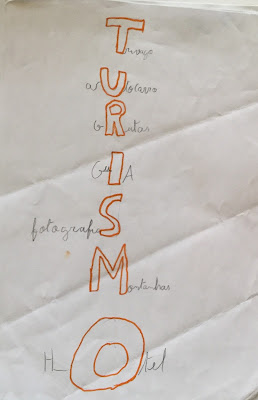 Trivago
aUtocarro
GRutas
GuIA
fotografiaS
Montanhas
HOtel